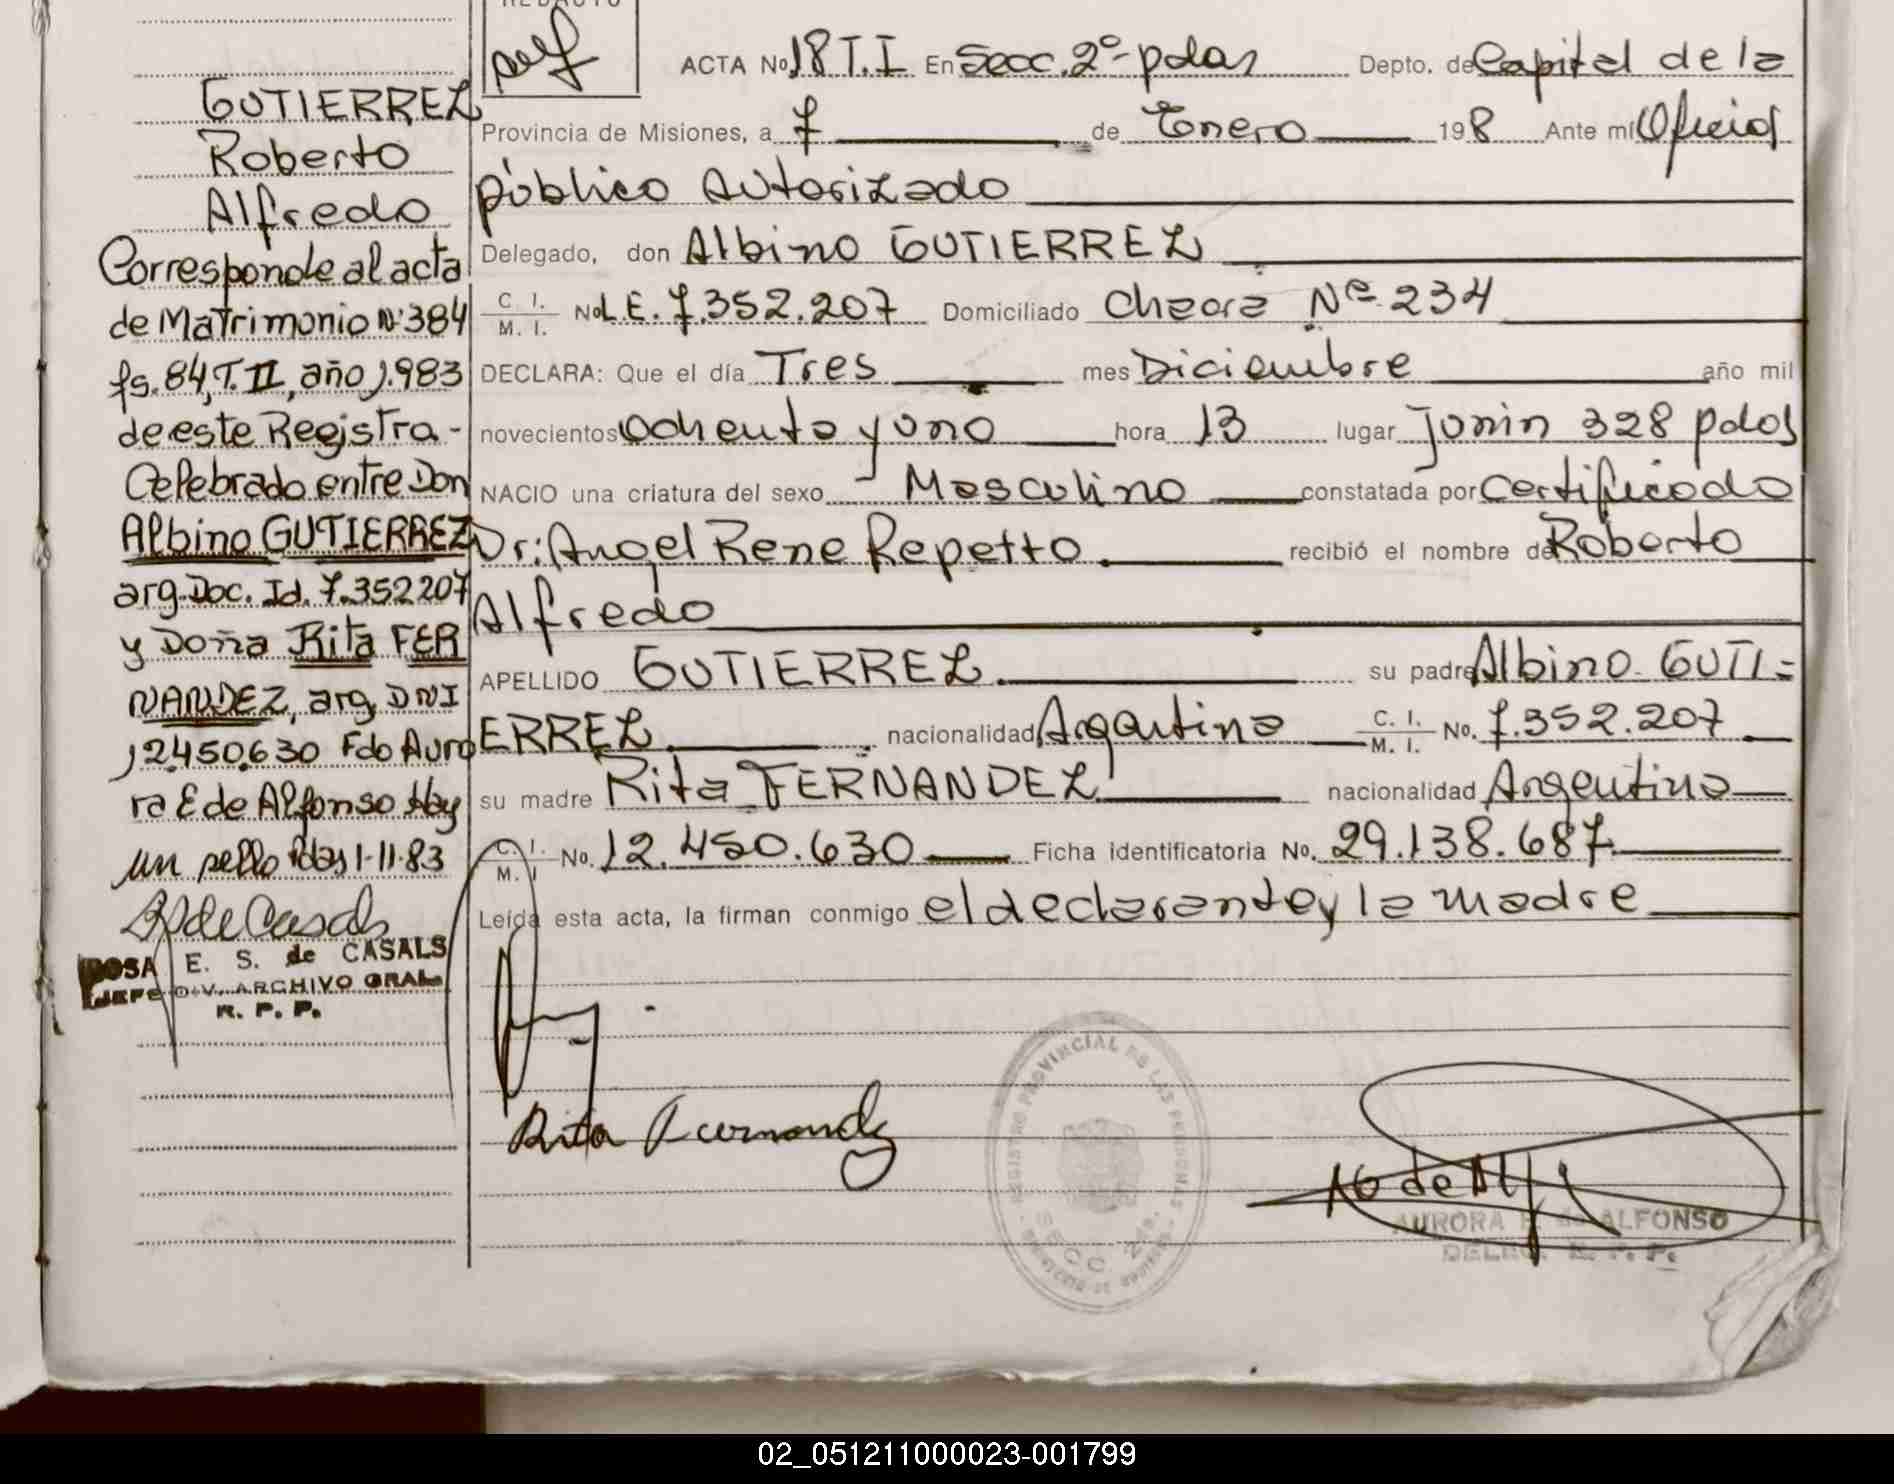 REDACTO
GUTIERREZ
Roberto
Alfredo
Corresponde al acta
de Matrimonio Nº 384
fs. 84, T. II, año 1.983
de este Registra-
Celebrado entre Don
Albino GUTIERREZ
arg. Doc. Id. 7.352207
y Doña Rita FER
NANDEZ, arg. DNI
12.450.630 Fdo Auro
ra E de Alfonso Hay
un sello Pdas 1-11-83
ROSA E. S. de CASALS
JEFE DIV. ARCHIVO GRAL.
R. P. P.
ACTA No. 18 T. I En Secc. 2º- pdas Depto. de Capital de la
Provincia de Misiones, a 7 de Enero 198 Ante mí Oficial
público Autorizado
Delegado, don Albino GUTIERREZ
C. I.
M. I. No. L.E. 7.352.207 Domiciliado Chacra Nº 234
DECLARA: Que el día Tres mes Diciembre año mil
novecientos ochenta y uno hora 13 lugar Junin 328 pdas
NACIO una criatura del sexo Masculino constatada por Certificado
Dr: Angel Rene Repetto recibió el nombre de Roberto
Alfredo
APELLIDO GUTIERREZ su padre Albino GUTI=
ERREZ nacionalidad Argentina C. I.
M. I. No. 7.352.207
su madre Rita FERNANDEZ nacionalidad Argentina
C. I.
M. I No. 12.450.630 Ficha Identificatoria No. 29.138.687
Leída esta acta, la firman conmigo el declarante y la madre
Rita Fernandez
REGISTRO PROVINCIAL DE LAS PERSONAS
SECC 2da.
AURORA E. de ALFONSO
DELEG. R. P. P.
02_051211000023-001799